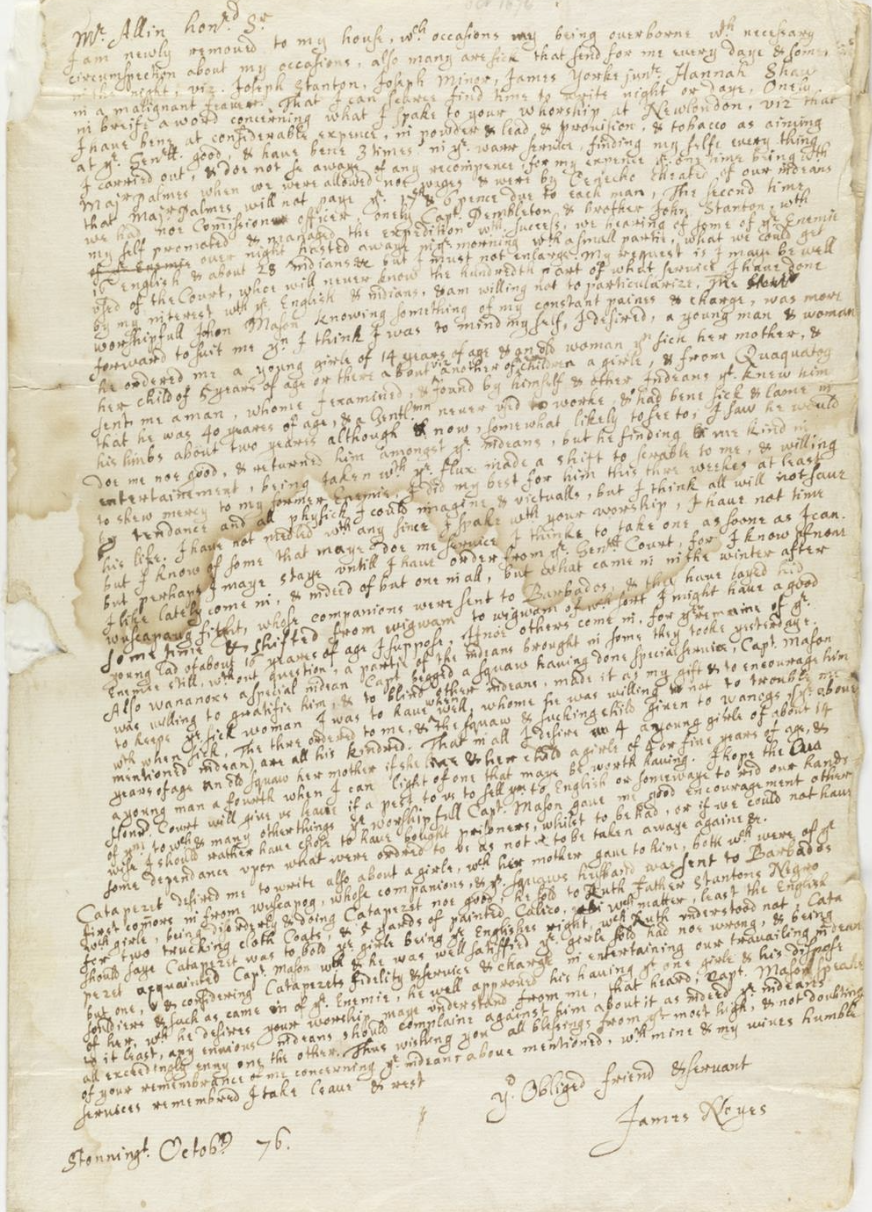 Mr. Allin honrd Sr
I am newly removed to my house, wch occasions my being overborne wth necessary
circumspection about my occasions, also many are sick that send for me every daye & some
night, viz. Joseph Stanton, Joseph Minor, James Yorke junr, Hannah Shaw
in a malignant feaver. That I can scarce find time to write night or daye. Onely
in breife a word concerning what I spake to your whorship at Newlondon, viz that
I have bene at considerable expence, in powder & lead, & provision, & tobacco as aiming
at ye Genrll good, & have bene 3 times in ye warr service, finding my selfe every thing
I carried out, & doe not se awaye of any recompence for my expence ye one time being wth
Major Palmes when we were allowed not wages & were by cheated of our indeans
that Major Palmes will not paye ye 17s & 6 pence due to each man, The second time
we had nor Comissioner officer, onely Capt. Pembleton & brother John Stanton, wth
my self promoted & managed the expedition wth success, we hearing of some of ye Enemie
over night hasted awaye in ye morning wth a small partie, what we could get
English & about 28 indians & but I must not enlarge. My request is I maye be well
used of the Court, whoe will never know the hundredth part of what service I have done
by my interest wth ye English & indians, & am willing not to particularize, The
worshipfull John Mason knowing something of my constant paines & charge, was more
forward to suit me yn I think I was to mind my self, I desired, a young man & woman
he ordered me a young girle of 14 years of age & an old woman yn sick her mother, &
her child of 5 years of age or there about another of children a girle, & from Quaquatog
sent me a man, whome I examined, & found by himself & other indeans yt knew him
that he was 40 yeares of age, & a Gentlmn never used to worke, & had bene sick & lame in
his limbs about two yeares although now, somewhat likely to see to, I saw he would
doe me noe good, & returned him amongst ye indeans, but he finding me kind in
entertainement, being taken wth ye flux made a shift to scrable to me, & willing
to shew mercy to my former Enemie, I did my best for him this thre weekes at least
by tendance and all physick I could imagine & victualls, but I think all will not save
his life. I have not medled wth any since I spake wth your worship, I have not time
but I know of some that maye doe me service I thinke to take one as soone as I can.
but perhaps I maye staye untill I have order from ye Genrll Court, for I know of none
I like lately come in, & indeed of but one in all, but what came in in the winter after
fight, whose companions were sent to Barbados, & they have layed hid
some time & shifted from wigwam to wigwam of wch sort I might have a good
young lad of about 16 yeares of age I suppose, if noe others come in, for yr remaine of ye
Enemie still, without question, a partie of the indeans brought in some they tooke yesterdaye.
Also wananoxs a speciall indean Capt begged a squaw having done speciall service, Capt. Mason
was willing to gratifie him, & to blind other indeans, made it as my gift & to encourage him
to keepe ye sick woman I was to have wth, whome he was willing not to trouble me
wth when sick, The thre ordered to me, & the squaw & sucking child given to wanogs above
mentioned indean) are all his kindred. That in all I desire 4 a young girle of about 14
years of age an old squaw her mother if she live & her child a girle of 4 or five yeares of age, &
a young man a fourth when I can light of one that maye be worth having. I hope the
Court will give us leave if a pest to us to sell ym to English or someway to rid our hands
of ym, to wch & many other things ye worshipfull Capt. Mason gave me good encouragement other
wise I should rather have chose to have bought prisoners, whilst to be had, or if we could not have
some dependance upon what were ordred to be as not to be taken awaye againe &c.
Catapezet desired me to write also about a girle, wch her mother gave to him, both wch were of ye
first comors in from whose companions, & ye squaws husband was sent to Barbados
wch girle, being disorderly & doing Catapezet noe good, he sold to Ruth Father Stantons Negro
for two trucking cloth Coats, & 5 yards of painted Calico, wch matter, least the English
should saye Catapezet was to bold, ye girle being ye Englishes right, wch Ruth understood not, Cata
pezet acquainted Capt. Mason wth & he was well satisfied ye girle sold had noe wrong, & being
but one, & considering Catapezets fidelity & service & charge in entertaining our travailing indean
souldiers & such as came in of ye Enemie, he well approved his having yt one girle & his dispose
of her, wch he desires your worship maye understand from me, that heard, Capt. Mason speake
to it least, any envious indeans should complaine against him about it as indeed ye indeans
all exceedingly envy one the other. Thus wishing you all blessings from ye most high, & not doubting
of your remembrance of me concerning ye indeans above mentioned, wth mine & my wives humble
services remembred I take leave & rest
yr Obliged friend & servant
James Noyes
Stonningt. Octobr 76.